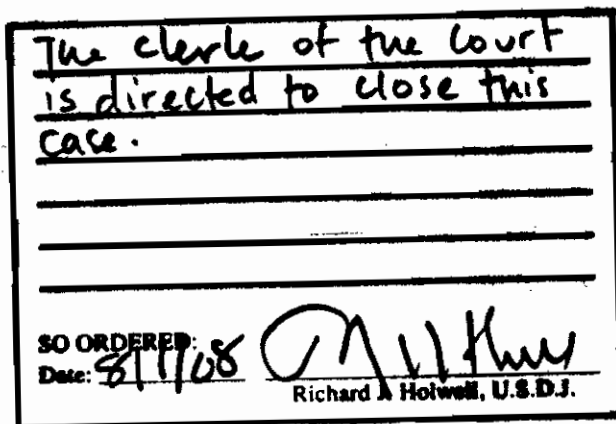 The clerk of the Court
is directed to close this
case.
SO ORDERED:
Date: 8/1/08
Richard J Holwell, U.S.D.J.